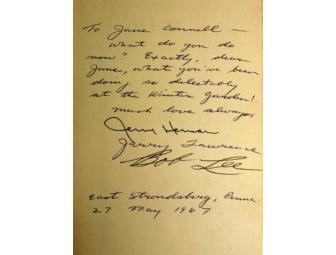 To Jane Connell —
What do you do
now? Exactly, dear
Jane, what you've been
doing so delectably
at the Winter Garden!
Much love always
Jerry Herman
Jerry Lawrence
Bob Lee
East Stroudsberg, Penna.
27 May 1967